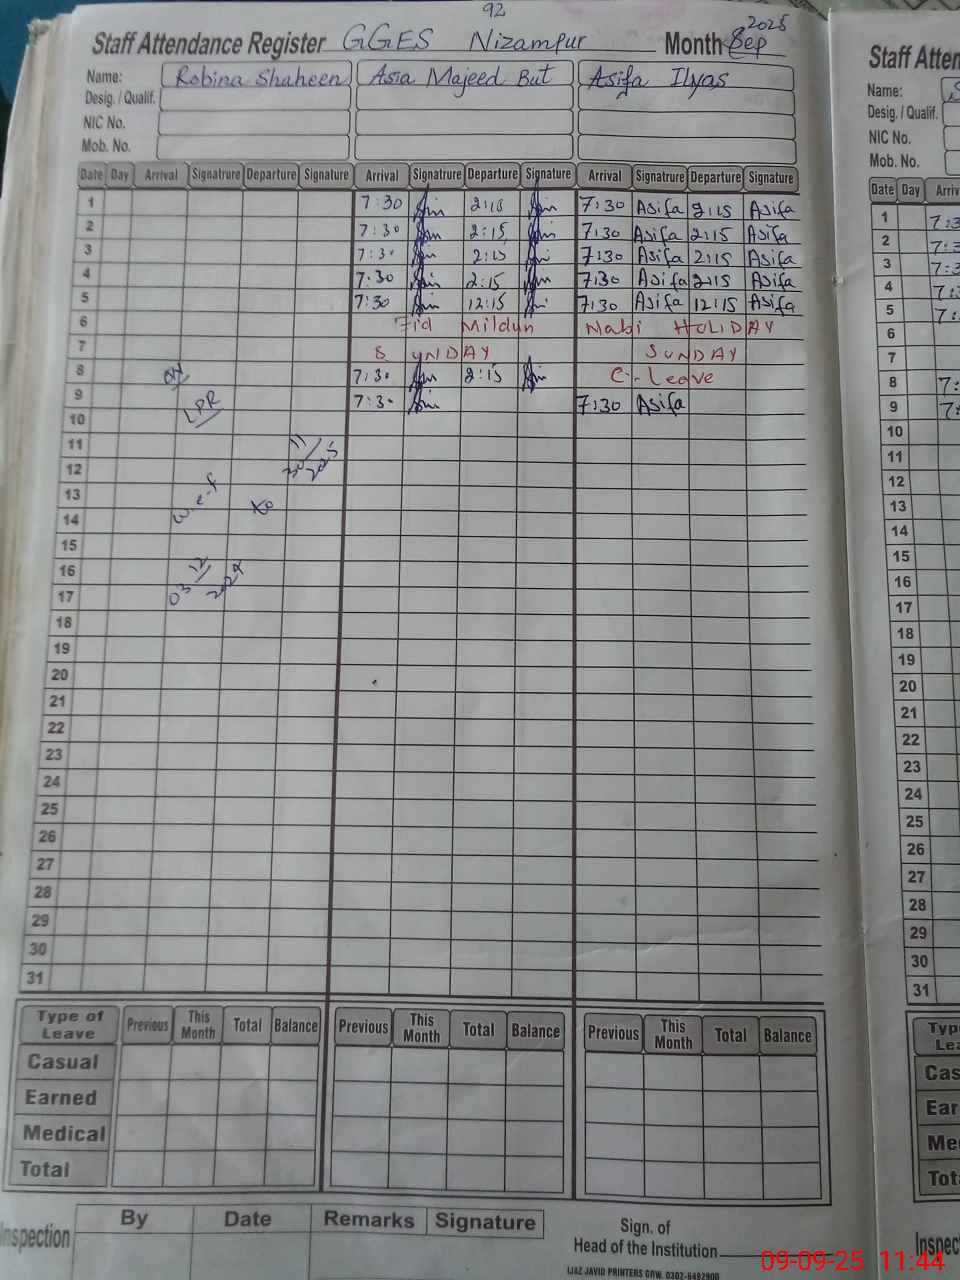 92
Staff Attendance Register GGES Nizampur Month Sep 2025
Name: Robina Shaheen Asia Majeed But Asifa Ilyas
Desig. / Qualif.
NIC No.
Mob. No.
Date Day Arrival Signatrure Departure Signature Arrival Signatrure Departure Signature Arrival Signatrure Departure Signature
1 7:30 2:15 7:30 Asifa 2:15 Asifa
2 7:30 2:15 7:30 Asifa 2:15 Asifa
3 7:30 2:15 7:30 Asifa 2:15 Asifa
4 7:30 2:15 7:30 Asifa 2:15 Asifa
5 7:30 12:15 7:30 Asifa 12:15 Asifa
6 Eid Mildun Nabi HOLIDAY
7 SUNDAY SUNDAY
8 7:30 2:15 C-Leave
9 7:30 7:30 Asifa
10
11
12
13
14
15
16
17
18
19
20
21
22
23
24
25
26
27
28
29
30
31
on LPR
w.e.f 03/12/2024 to 30/11/2025
Type of Leave Previous This Month Total Balance Previous This Month Total Balance Previous This Month Total Balance
Casual
Earned
Medical
Total
Inspection By Date Remarks Signature
Sign. of
Head of the Institution
IJAZ JAVID PRINTERS GRW. 0302-6492900
Staff Atten
Name: S
Desig. / Qualif.
NIC No.
Mob. No.
Date Day Arriv
1 7:3
2 7:3
3 7:3
4 7:3
5 7:
6
7
8 7:
9 7:
10
11
12
13
14
15
16
17
18
19
20
21
22
23
24
25
26
27
28
29
30
31
Typ
Lea
Cas
Ear
Me
Tot
Inspec
09-09-25 11:44